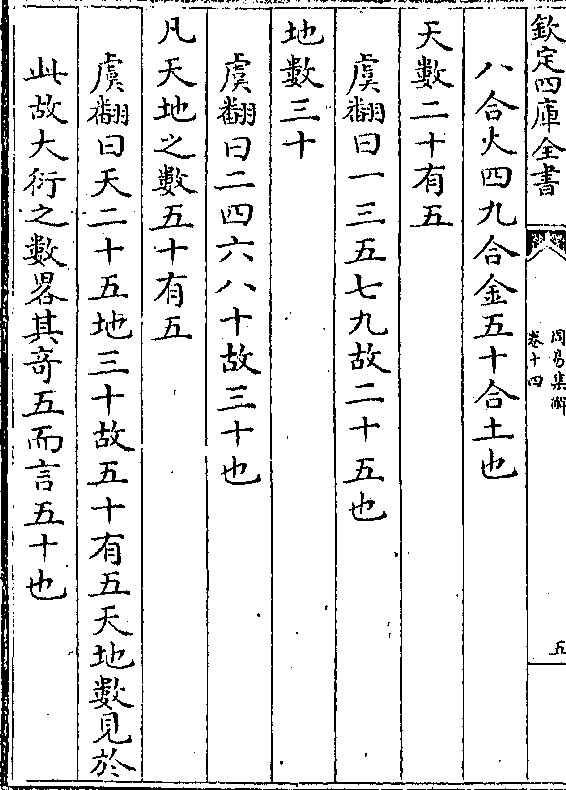 欽定四庫全書
周易集解
卷十四
五
八合火四九合金五十合土也
天數二十有五
虞翻曰一三五七九故二十五也
地數三十
虞翻曰二四六八十故三十也
凡天地之數五十有五
虞翻曰天二十五地三十故五十有五天地數見於
此故大衍之數畧其竒五而言五十也